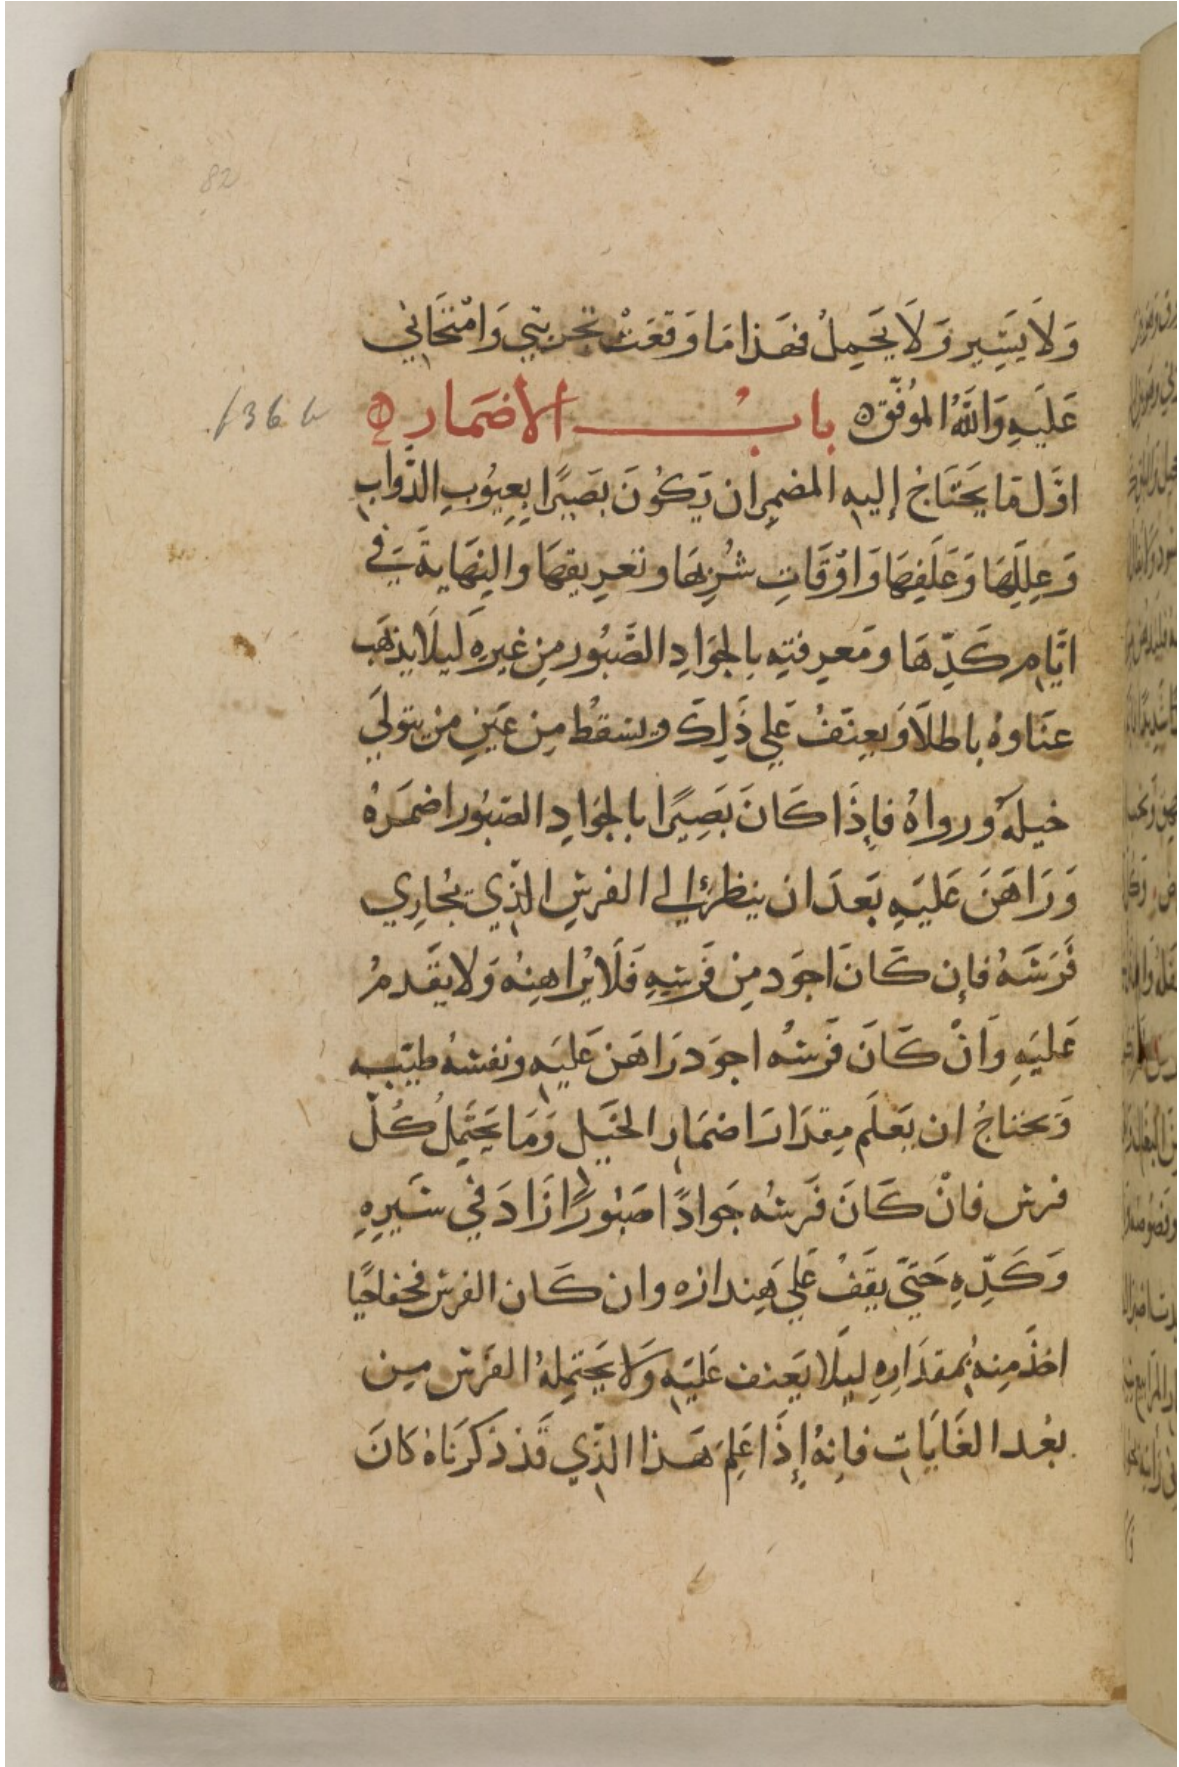 82
وَلَا يَسِّير وَلَا يَحمِلُ فهَذا مَا وَقعَتْ تجربتي وَامْتحَاني
عَليَهِ وَاللهُ الموُفّق بابُ الاضمَار
136 b
اوَّل مَا يَحتَاجُ إليهِ المضمِر ان يَكوُنَ بصَيرًا بِعِيوُبِ الدَّواب
وَعِلَلِهَا وَعَلَفِهَا وَاوْقَاتِ شُرْبهَا وتعرِيقهَا وَالنِهَاية فى
ايَّامِ كَدِّهَا ومَعرِفتِهِ بالجوَادِ الصَّبُور مِن غيرِهِ ليلَا يذهَب
عنَاوهُ باطلَا وَيعنَفُ عَلي ذَلِكَ ويسَقُط مِن عَينِ من يتولَي
خيلَهُ ورواهُ فإِذَا كَانَ بَصِيرًا بالجوَادِ الصَبُور اضمَرهُ
وَرَاهَنَ عَليَهِ بَعدَ ان ينظر الي الفرسِ الذِّي يجُارِي
فَرَسَهُ فإن كَانَ اجوَد مِن فَرسِهِ فَلَا يُراهِنهُ وَلا يقَدمُ
عَليَهِ وَانْ كَانَ فَرسهُ اجوَد رَاهَن عَليَهِ ونفسُهُ طيّبه
وَيحتاجُ ان يَعلَم مِقدَارَ اضمَارِ الخَيل وَمَا يَحتَمِلُ كُلّ
فرس فانْ كَانَ فَرسُه جَوادًا صَبُورًا زَادَ فِي سَيرِهِ
وَكَدِّهِ حَتيَّ يقَفُ عَلي هِندازه وان كَان الفرس
اخذَ مِنهُ بمقدَارِهِ ليَلَا يَعنف عَليَهِ وَلا يَحتمِلهُ الفَرس مِن
بعُد الغَايَاتِ فاِنهُ إِذَا عَلِمَ هَذا الذِّي قَد ذكرَناهُ كانَ